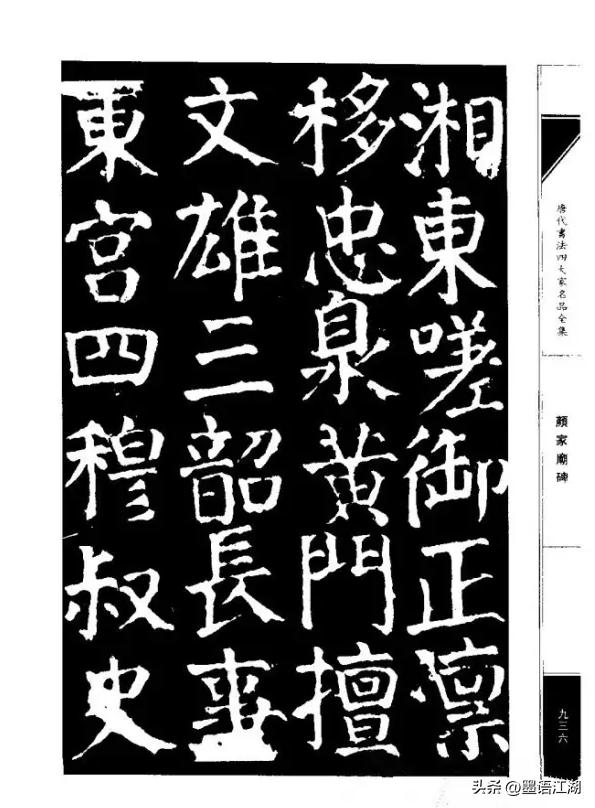 湘東嗟御正凜
移忠臬黃門擅
文雄三韶長事
東宮四穆叔史
唐代書法四大家名品全集
顏家廟碑
九三六
头条 @墨语江湖